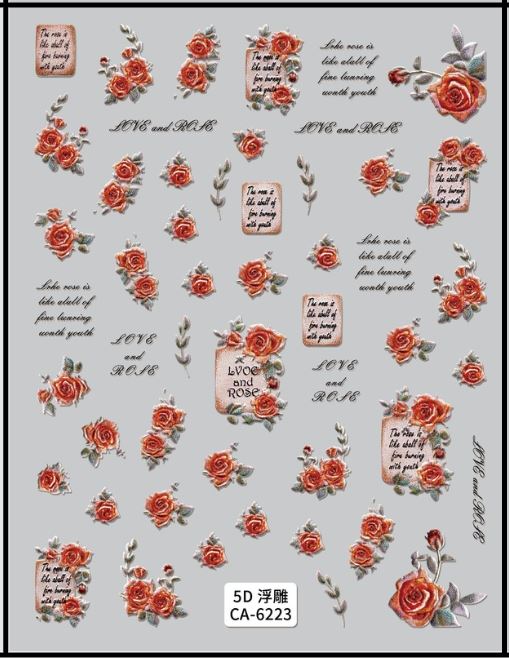 The rose is
like aball of
fire burning
with youth
The rose is
like aball of
fire burning
with youth
Lrhe rose is
like alall of
fine lunring
wonth youth
LOVE and ROSE
LOVE and ROSE
The rose is
like aball of
fire burning
with youth
The rose is
like aball of
fire burning
with youth
Lrhe rose is
like alall of
fine lunring
wonth youth
Lrhe rose is
like alall of
fine lunring
wonth youth
The rose is
like aball of
fire burning
with youth
LOVE
and
ROSE
LVOE
and
ROSE
LOVE
and
ROSE
The rose is
like aball of
fire burning
with youth
LOVE and ROSE
The rose is
like aball of
fire burning
with youth
5D 浮雕
CA-6223